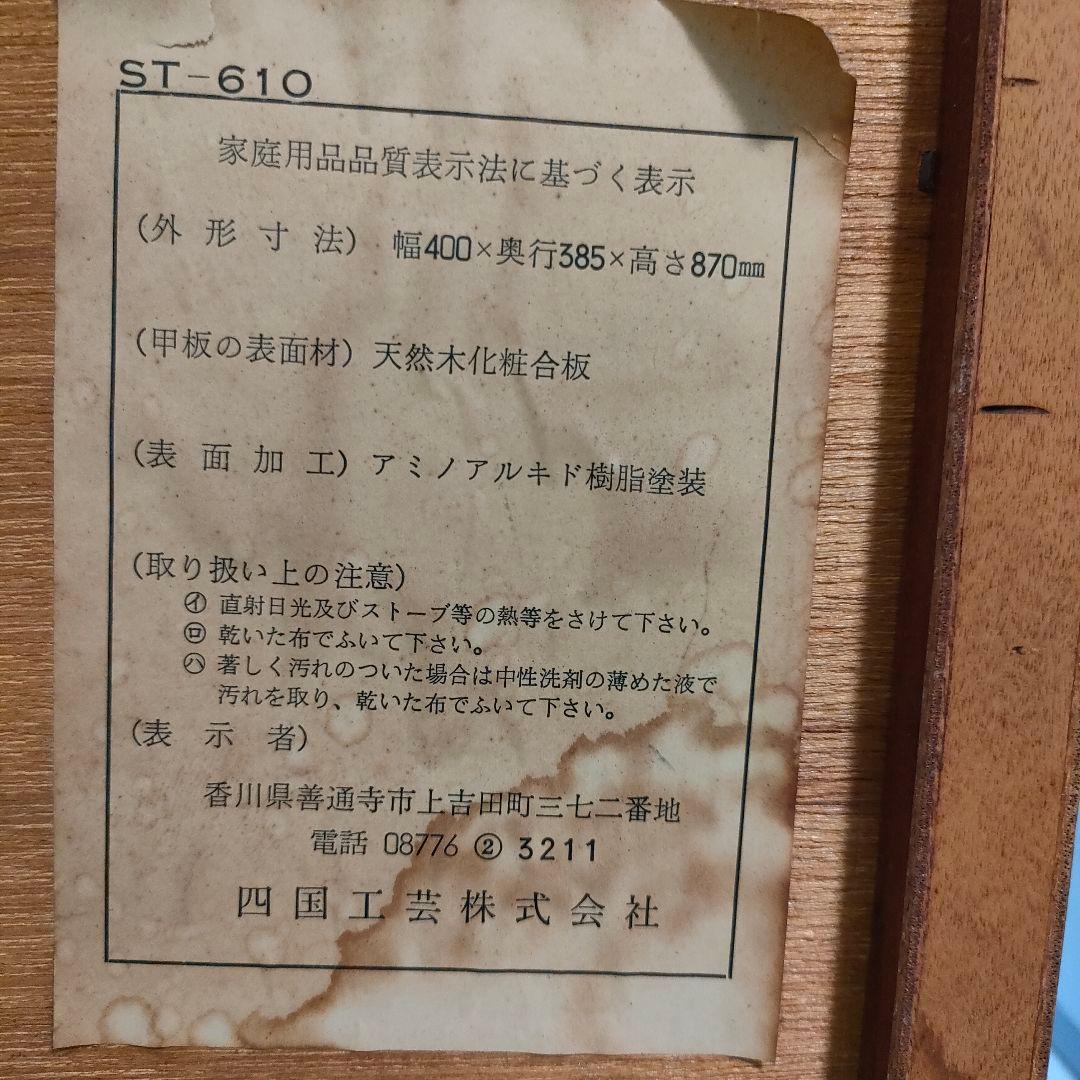 ST-610
家庭用品品質表示法に基づく表示
(外形寸法) 幅400×奥行385×高さ870mm
(甲板の表面材) 天然木化粧合板
(表面加工) アミノアルキド樹脂塗装
(取り扱い上の注意)
㋑ 直射日光及びストーブ等の熱等をさけて下さい。
㋺ 乾いた布でふいて下さい。
㋩ 著しく汚れのついた場合は中性洗剤の薄めた液で
汚れを取り、乾いた布でふいて下さい。
(表示者)
香川県善通寺市上吉田町三七二番地
電話 08776 ② 3211
四国工芸株式会社